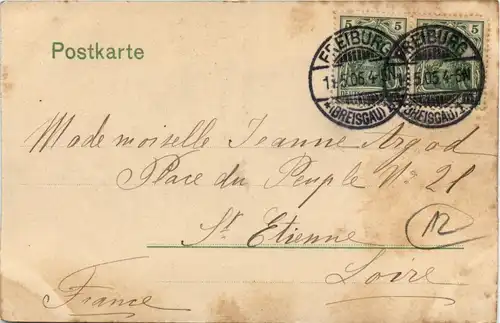 5 5 5
Postkarte
FREIBURG FREIBURG
5.05.4-5N 5.05.4-5N
(BREISGAU) (BREISGAU)
Mademoiselle Jeanne Argod
Place du Peuple No 21
St Etienne
Loire
France